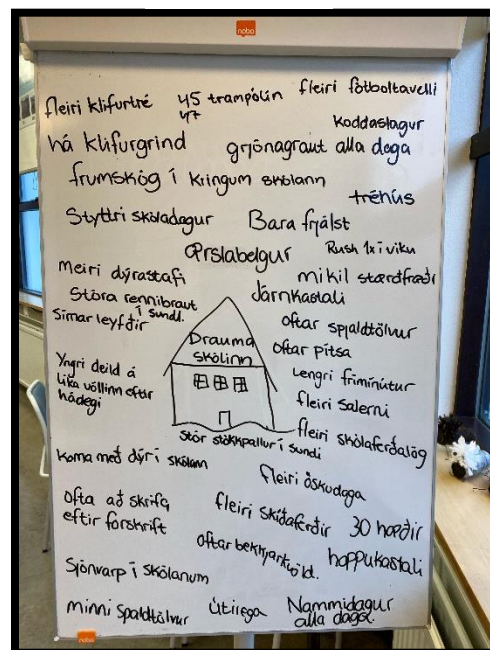 nobo
fleiri klifurtré 45 trampólín fleiri fótboltavelli
47
koddaslagur
há klifurgrind grjónagraut alla daga
frumskóg í kringum skólann
tréhús
Styttri skóladagur Bara frjálst
Ærslabelgur Rush 1x í viku
Meiri dýrastafi mikil stærðfræði
Stóra rennibraut Járnkastali
í sundl.
Símar leyfðir
oftar spjaldtölvur
Drauma
skólinn
oftar pitsa
Yngri deild á
líka völlinn eftir
hádegi
Lengri frímínútur
fleiri salerni
fleiri skólaferðalög
Stór stökkpallur í sundi
koma með dýr í skólann
fleiri öskudaga
ofta að skrifa
eftir forskrift
fleiri skíðaferðir 30
oftar bekkjarkvöld.
hoppukastali
Sjónvarp í skólanum
minni spaldtölvur útilega Nammidagur
alla daga.
nobo